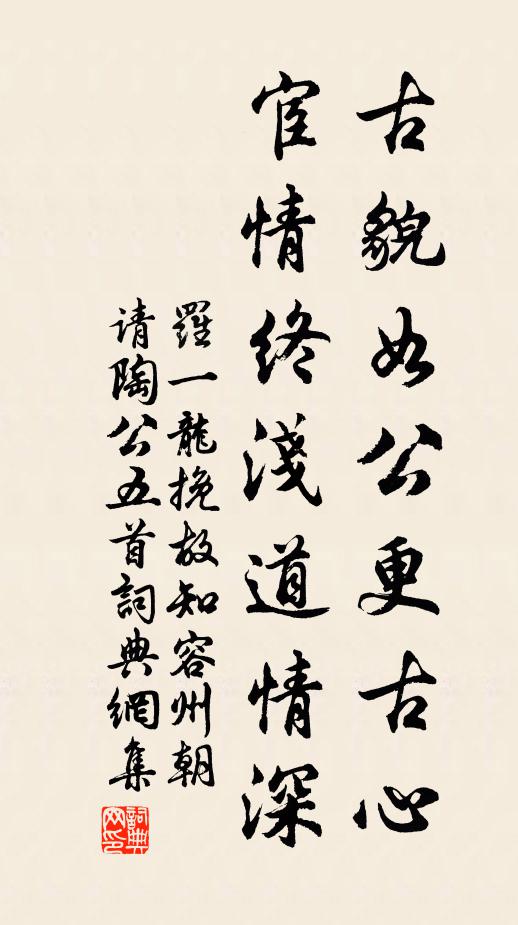 古貌如公更古心
宦情終淺道情深
羅一龍挽故知容州朝
请陶公五首詞典網集
詞典网印